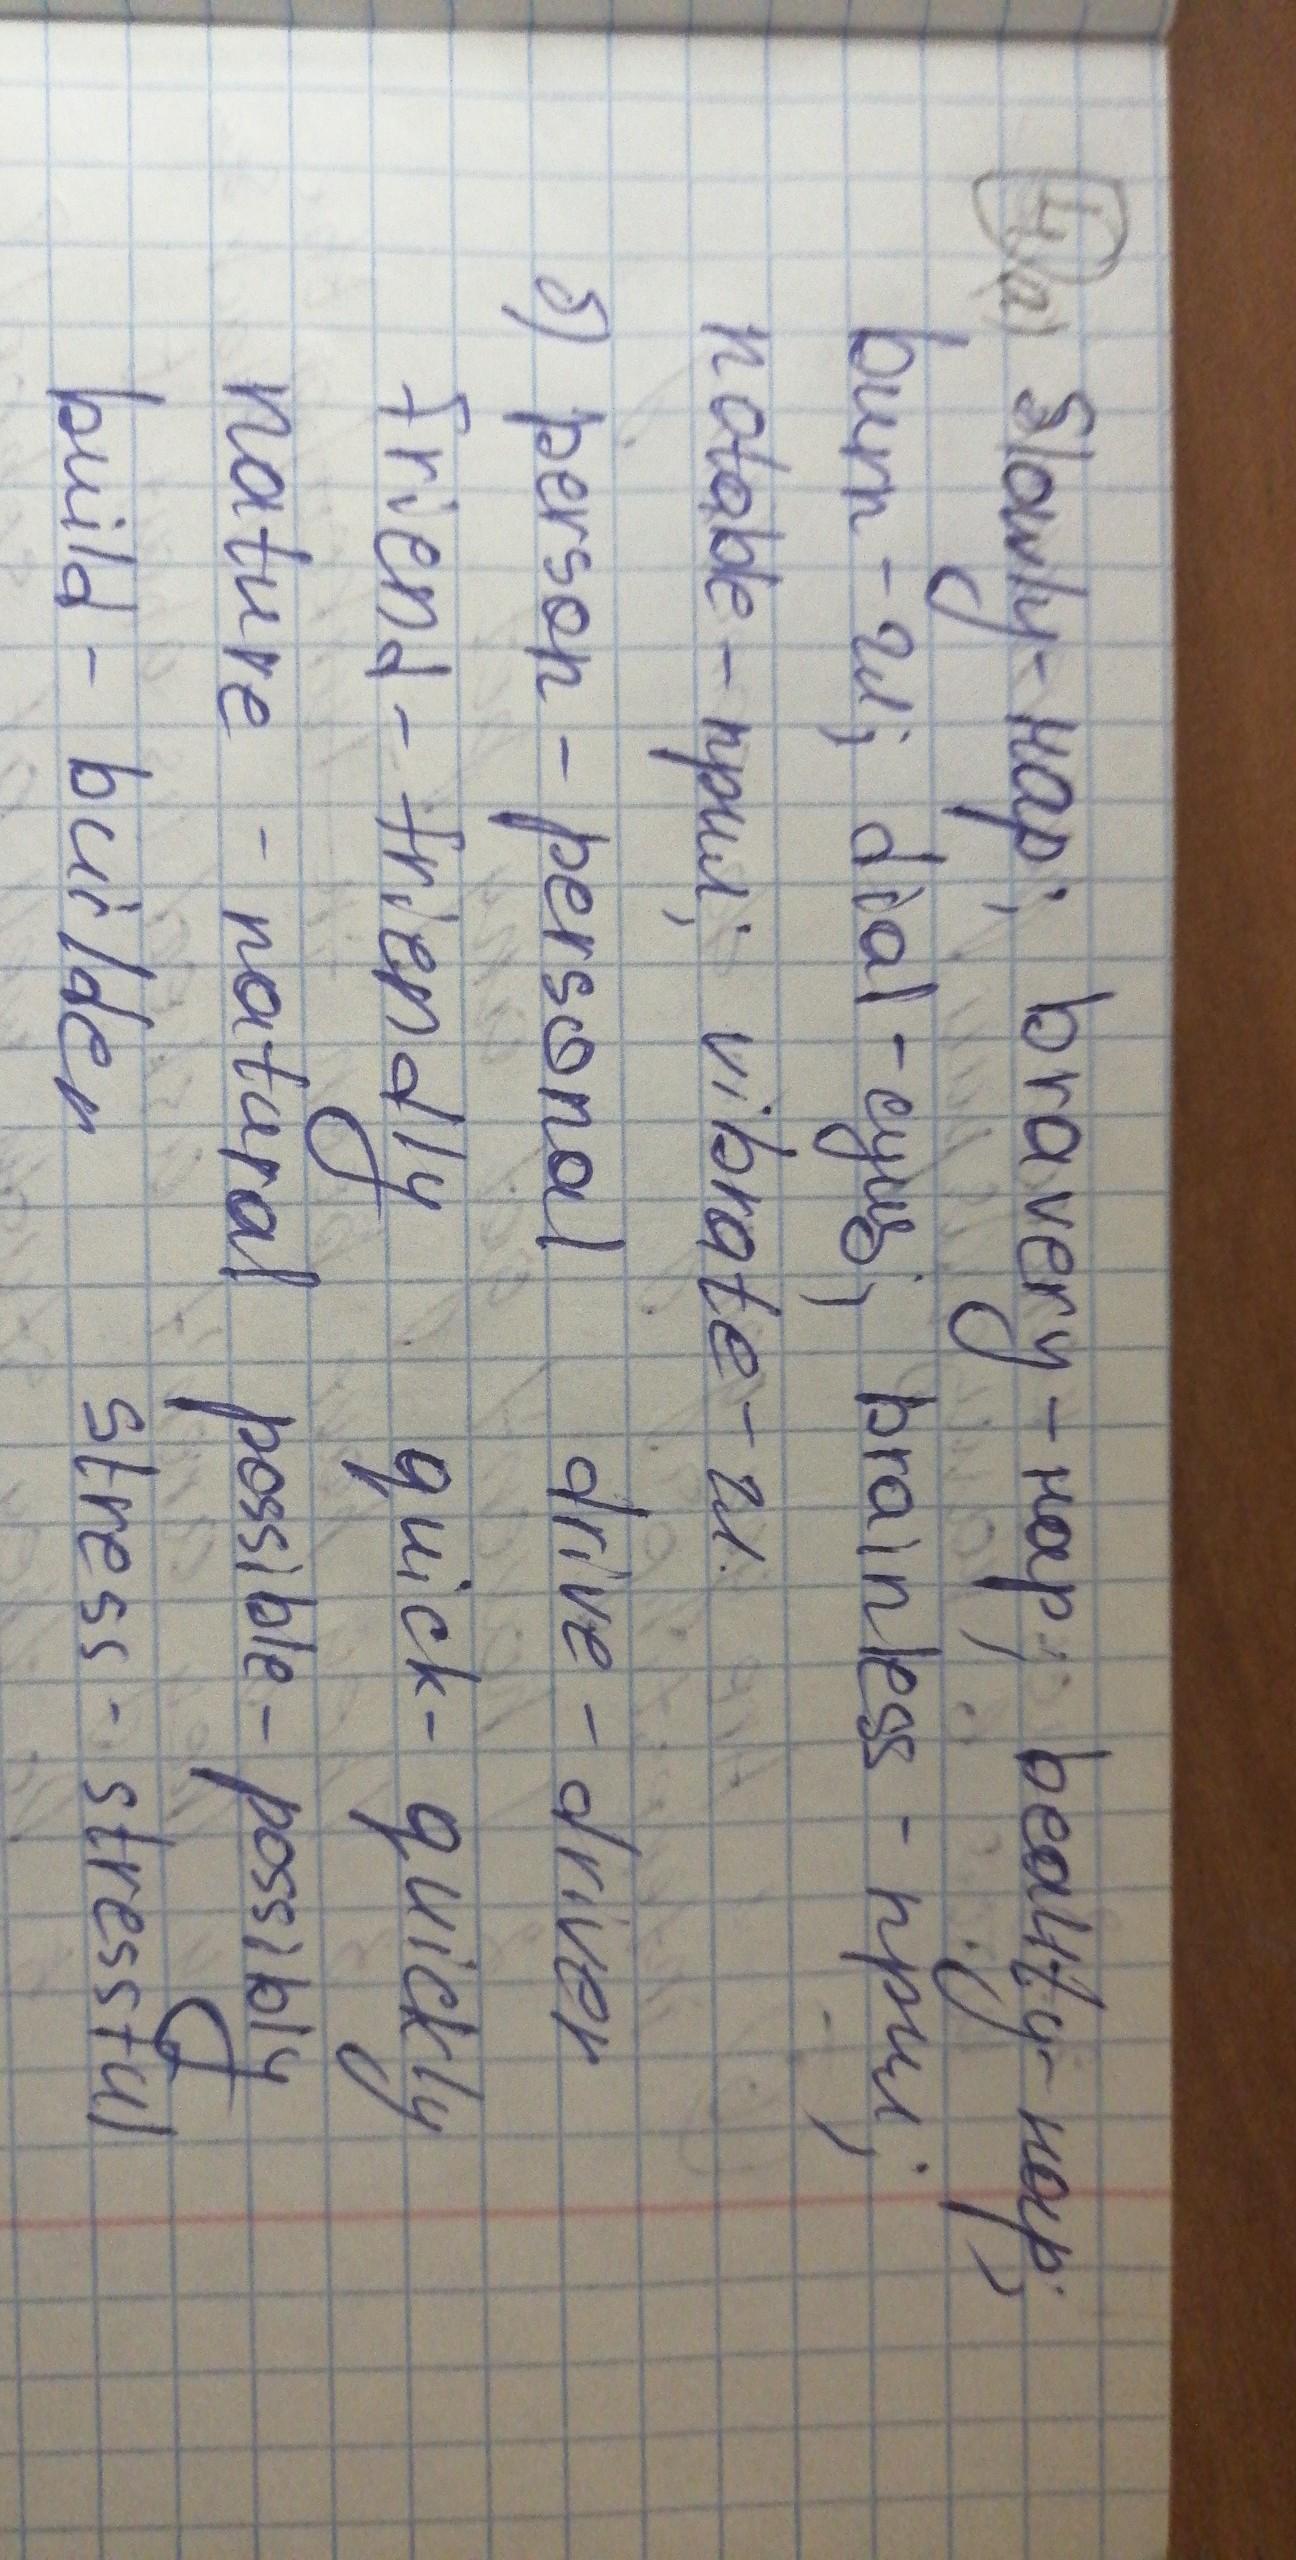 4. а) Slowly - нар; bravery - нар; beauty - нар;
burn - гл; dial - сущ; brainless - прил;
notable - прил; vibrate - гл.
б) person - personal drive - driver
friend - friendly quick - quickly
nature - natural possible - possibly
build - builder stress - stressful